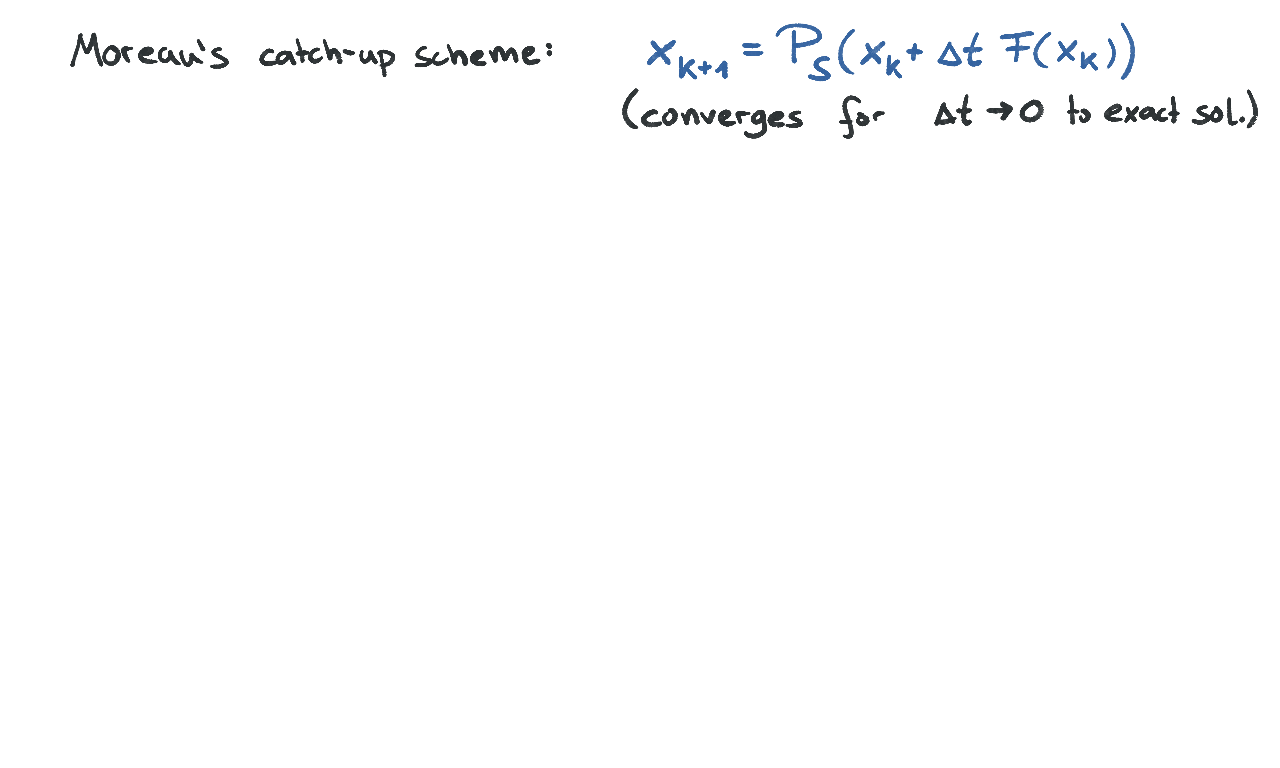 Moreau's catch-up scheme: x_{k+1} = P_S(x_k + Δt F(x_k))
(converges for Δt → 0 to exact sol.)